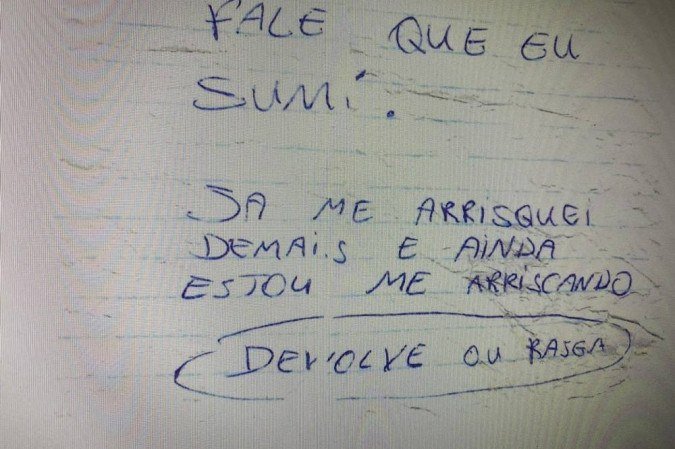 FALE QUE EU
SUMi.
JA ME ARRISQUEI
DEMAIS E AINDA
ESTOU ME ARRISCANDO
DEVOLVE OU RASGA